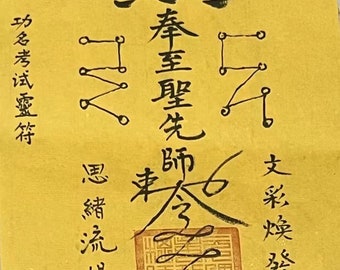 功名考试靈符
奉至聖先師
東令
思緒流
文彩煥發